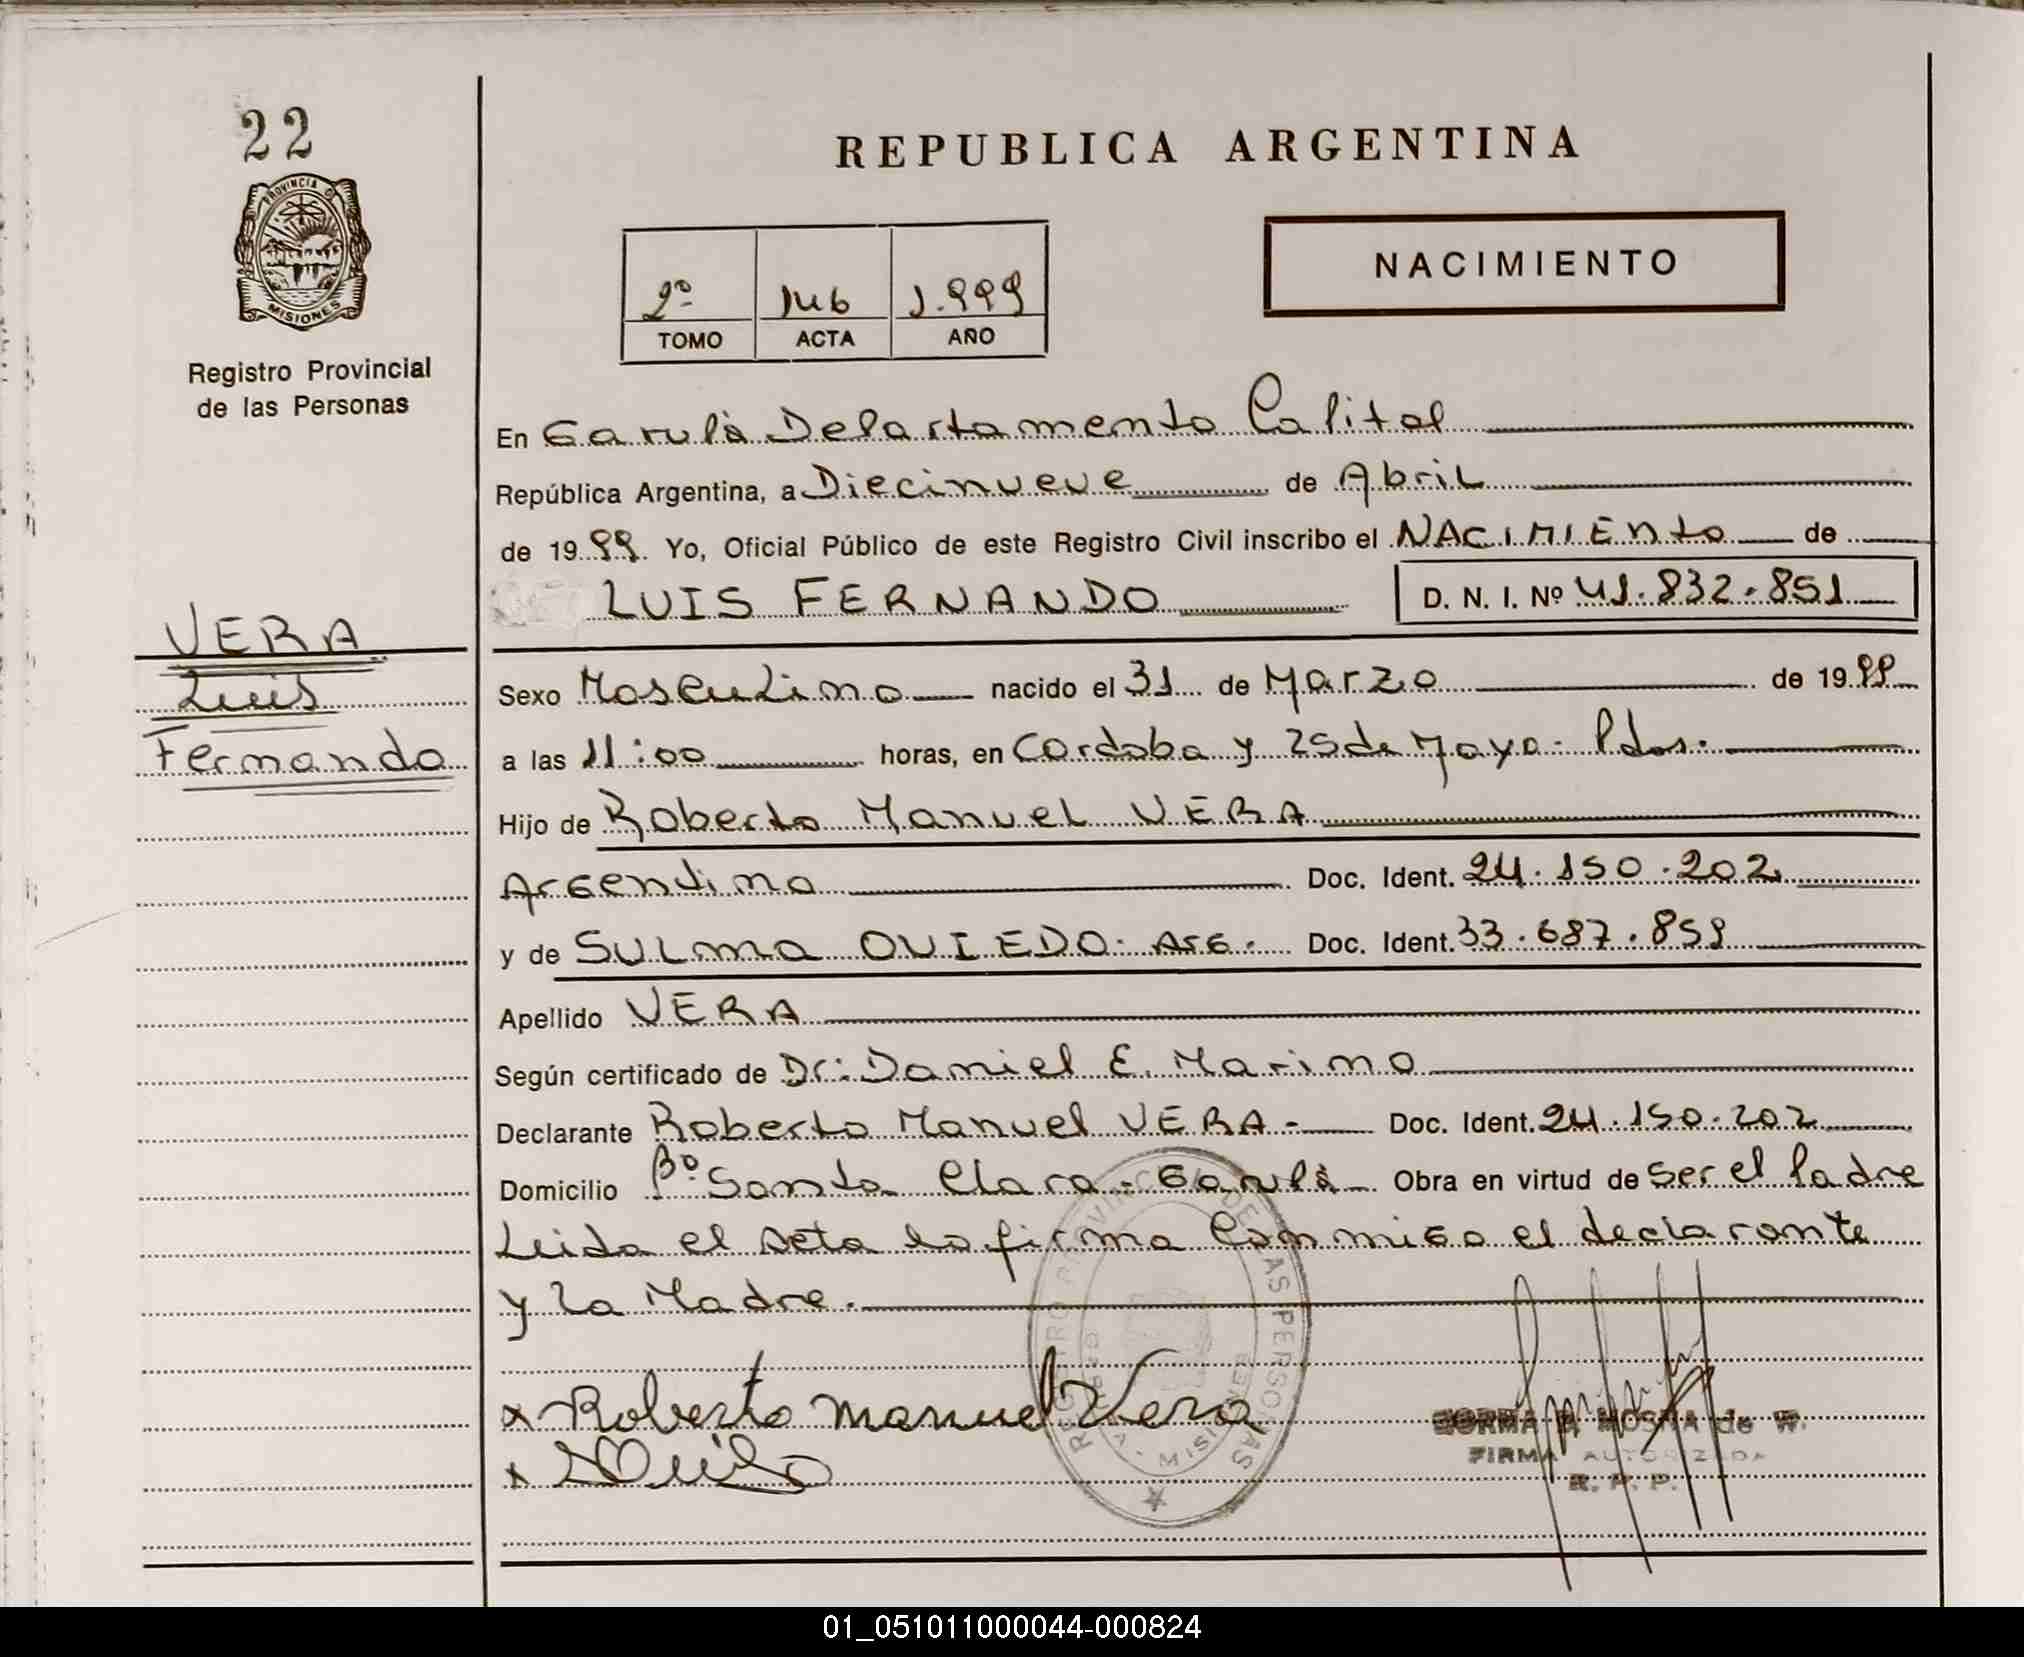 22
REPUBLICA ARGENTINA
PROVINCIA DE
MISIONES
NACIMIENTO
2º 146 1.999
TOMO ACTA AÑO
Registro Provincial
de las Personas
En Garupá Departamento Capital
República Argentina, a Diecinueve de Abril
de 1999. Yo, Oficial Público de este Registro Civil inscribo el NACIMIENto de
LUIS FERNANDO D. N. I. Nº 41.832.851
VERA
Luis
Fernando
Sexo Masculino nacido el 31 de Marzo de 1999
a las 11:00 horas, en Cordoba y 25 de Mayo - Pdas.
Hijo de Roberto Manuel VERA
Argentino Doc. Ident. 24.150.202
y de SULMA OVIEDO. Arg. Doc. Ident. 33.687.859
Apellido VERA
Según certificado de Dr: Daniel E. Marino
Declarante Roberto Manuel VERA - Doc. Ident. 24.150.202
Domicilio Bº Santa Clara - Garupá Obra en virtud de ser el Padre
Leida el acta la firma conmigo el declarante
y La Madre.
x Roberto manuel Vera
x
REGISTRO PROVINCIAL DE LAS PERSONAS
MISIONES
NORMA B. MOSKA de W.
FIRMA AUTORIZADA
R. P. P.
01_051011000044-000824